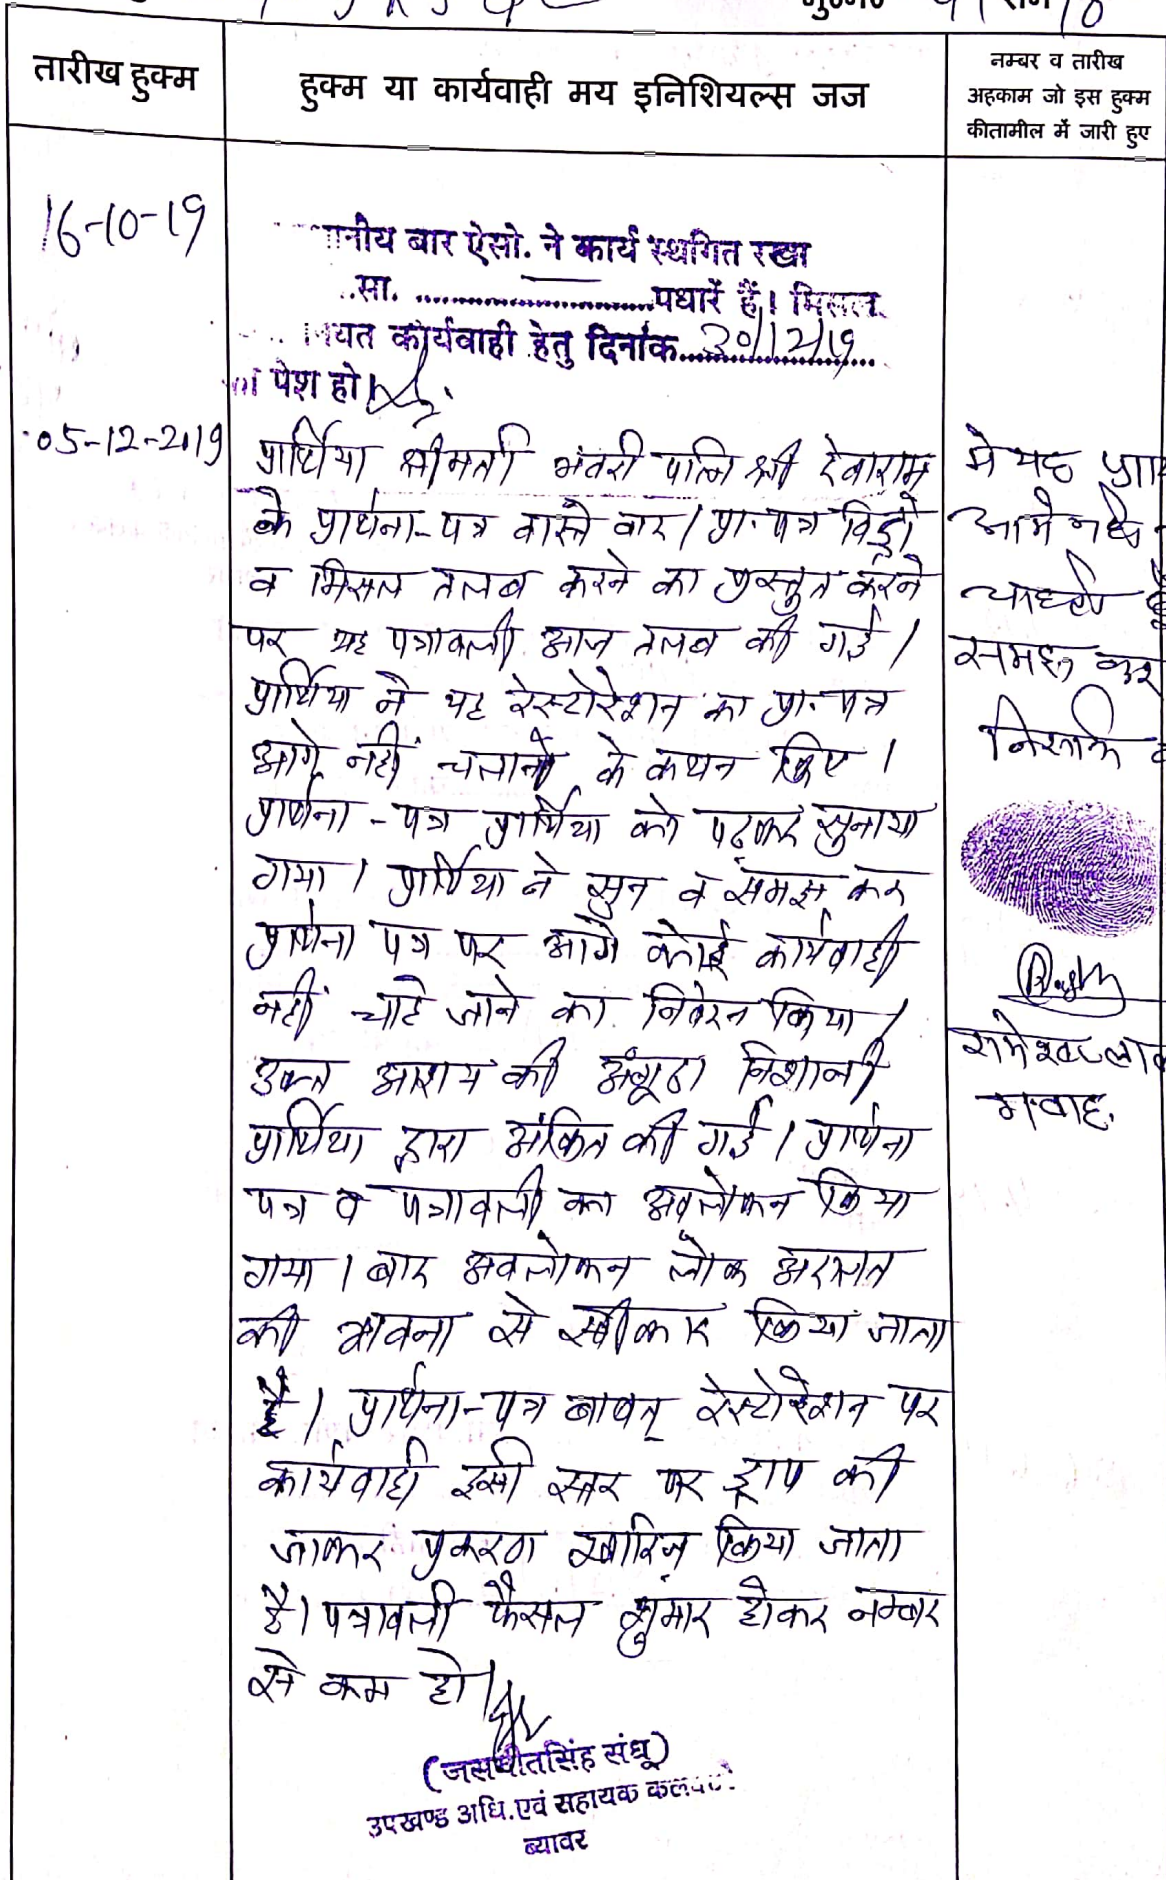 तारीख हुक्म
हुक्म या कार्यवाही मय इनिशियल्स जज
नम्बर व तारीख
अहकाम जो इस हुक्म
कीतामील में जारी हुए
16-10-19
नीय बार ऐसो. ने कार्य स्थगित रखा
सा. ........................पधारें हैं। मिसल
यत कार्यवाही हेतु दिनांक..30/12/19
पेश हो।
05-12-2019
प्रार्थिया श्रीमती भंवरी पत्नि श्री देवाराम
के प्रार्थना-पत्र वास्ते वाद / प्रा. पत्र विड्रो
व मिसल तलब करने का प्रस्तुत करने
पर यह पत्रावली आज तलब की गई।
प्रार्थिया ने यह रेस्टोरेशन का प्रा. पत्र
आगे नहीं चलाने के कथन किए।
प्रार्थना-पत्र प्रार्थिया को पढ़कर सुनाया
गया। प्रार्थिया ने सुन व समझ कर
प्रार्थना पत्र पर आगे कोई कार्यवाही
नहीं चाहे जाने का निवेदन किया।
उक्त आशय की अंगूठा निशानी
प्रार्थिया द्वारा अंकित की गई। प्रार्थना
पत्र व पत्रावली का अवलोकन किया
गया। बाद अवलोकन लोक अदालत
की भावना से स्वीकार किया जाता
है। प्रार्थना-पत्र बाबत् रेस्टोरेशन पर
कार्यवाही इसी स्तर पर ड्राप की
जाकर प्रकरण खारिज किया जाता
है। पत्रावली फैसल शुमार होकर नम्बर
से कम हो।
(जसमीतसिंह संधू)
उपखण्ड अधि. एवं सहायक कलक्टर
ब्यावर
मे यह
आगे नही
समझ कर
रामेश्वर लाल
गवाह